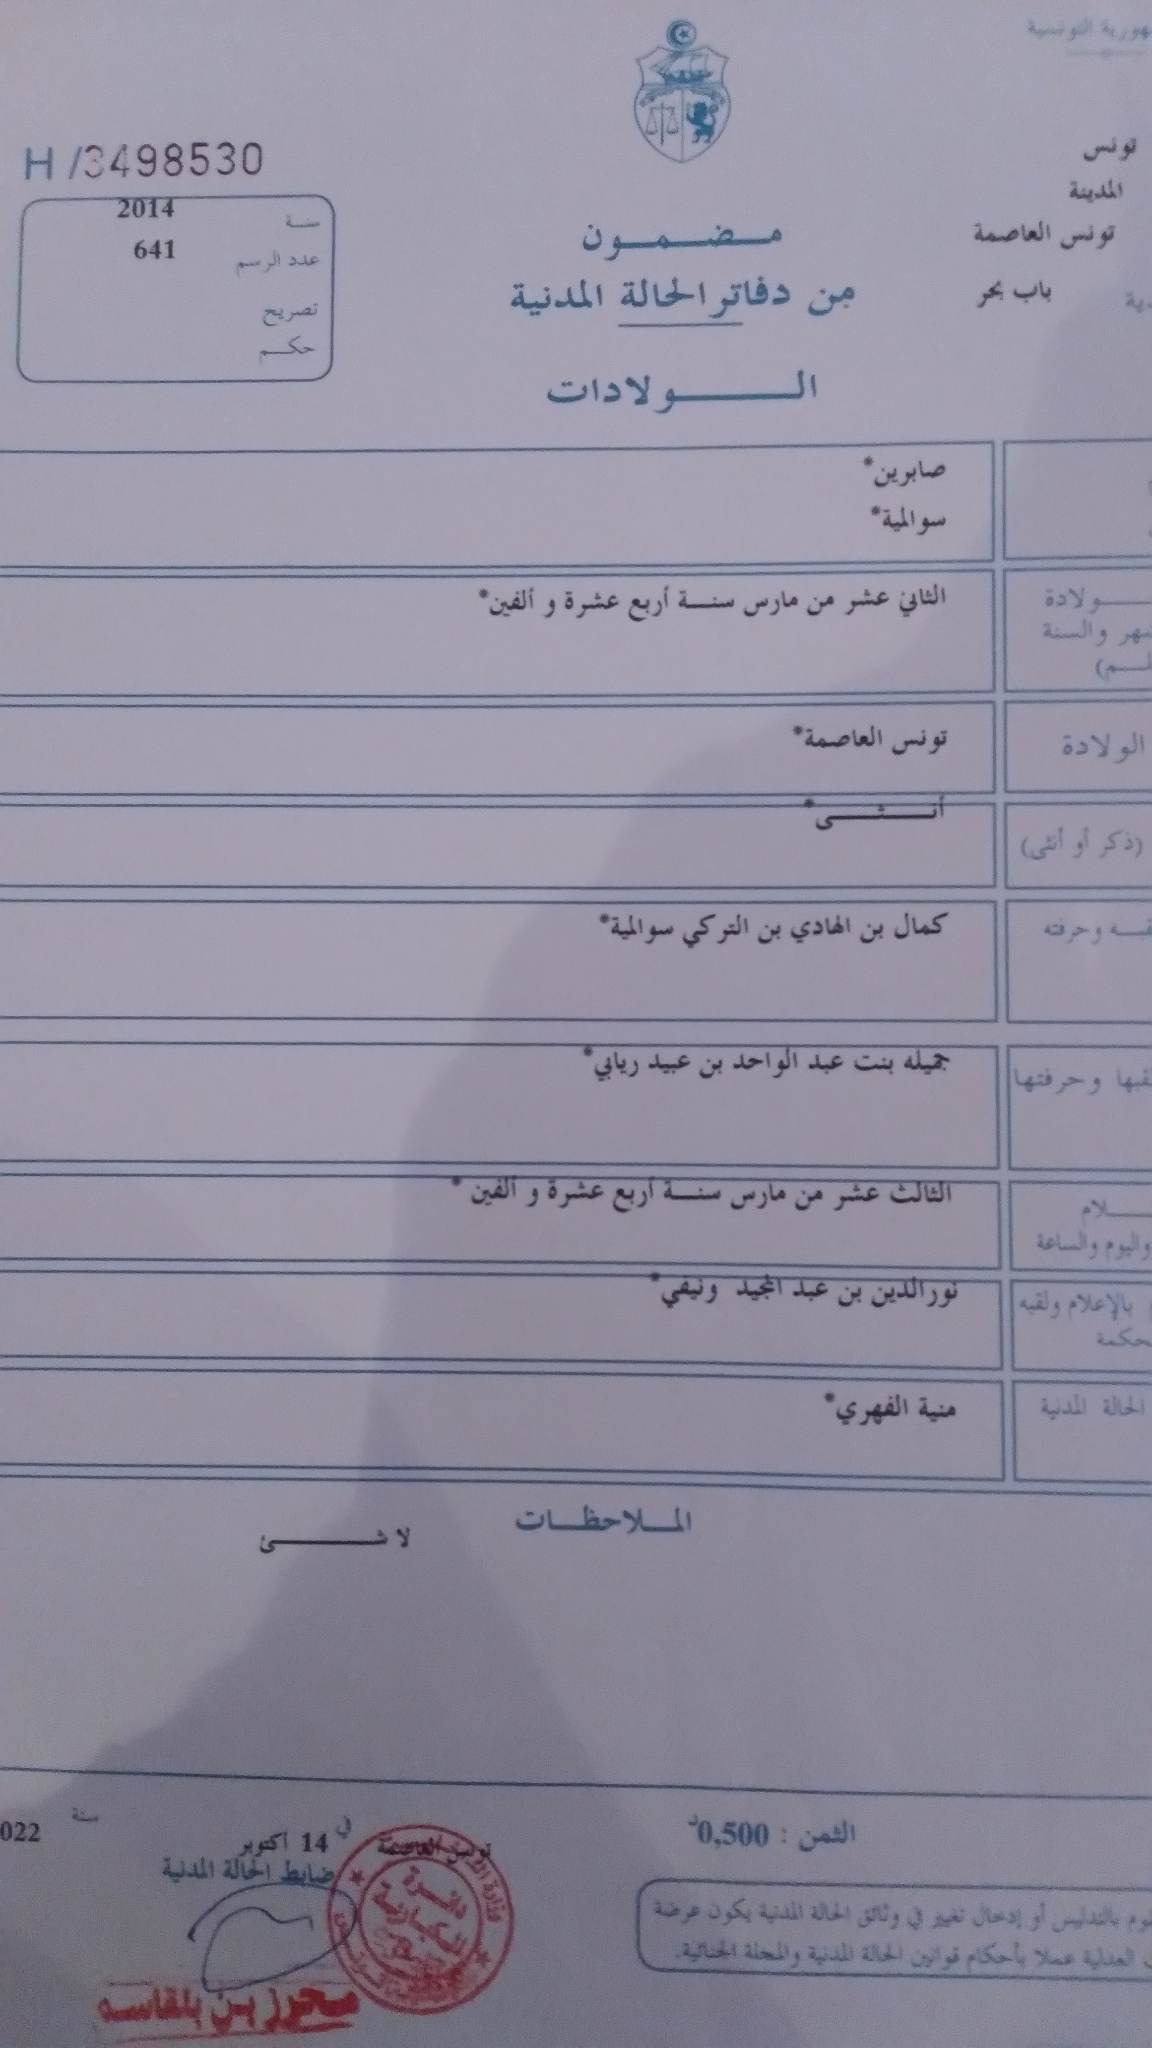 هورية التونسية
تونس
المدينة
تونس العاصمة
باب بحر
دية
H /3498530
سنة 2014
عدد الرسم 641
تصريح
حكم
مضمون
من دفاتر الحالة المدنية
الولادات
صابرين*
سوالمية*
ولادة
شهر والسنة
لم)
الثاني عشر من مارس سنة أربع عشرة و ألفين*
الولادة
تونس العاصمة*
(ذكر أو أنثى)
أنثى*
قبه وحرفته
كمال بن الهادي بن التركي سوالمية*
قبها وحرفتها
جميله بنت عبد الواحد بن عبيد ريابي*
لام
واليوم والساعة
الثالث عشر من مارس سنة أربع عشرة و ألفين *
بالإعلام ولقبه
حكمة
نورالدين بن عبد المجيد ونيفي*
الحالة المدنية
منية الفهري*
الملاحظات
لا شئ
الثمن : 0,500د
تونس العاصمة في 14 أكتوبر سنة 022
ضابط الحالة المدنية
محرز بن بلقاسم
قوم بالتدليس أو إدخال تغيير في وثائق الحالة المدنية يكون عرضة
العدلية عملا بأحكام قوانين الحالة المدنية والمجلة الجنائية.